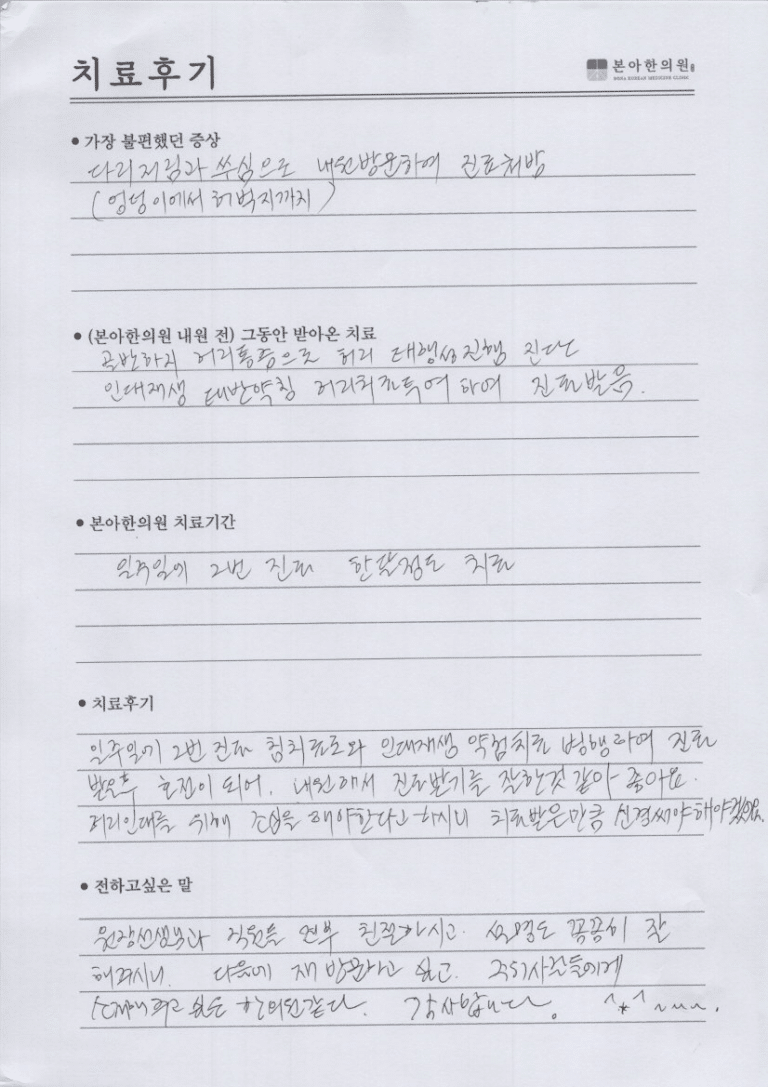 치료후기
본아한의원
BONA KOREAN MEDICINE CLINIC
• 가장 불편했던 증상
다리저림과 쑤심으로 내원방문하여 진료처방
(엉덩이에서 허벅지까지)
• (본아한의원 내원 전) 그동안 받아온 치료
골반하지 허리통증으로 허리 퇴행성진행 진단
인대재생 태반약침 하여 진료받음.
• 본아한의원 치료기간
일주일에 2번 진료 한달정도 치료
• 치료후기
일주일에 2번 진료 침치료와 인대재생 약침치료 병행하여 진료
받은후 호전이 되어. 내원해서 진료받기를 잘한것 같아 좋아요.
허리인대를 위해 조심을 해야한다고 하시니 치료받은만큼 신경써야해야겠어요.
• 전하고싶은 말
원장선생님과 직원들 전부 친절하시고. 설명도 꼼꼼히 잘
해주시니. 다음에 재방문하고 싶고. 주위사람들에게
소개해주고 싶은 한의원같다. 감사합니다. ^*^~~~.